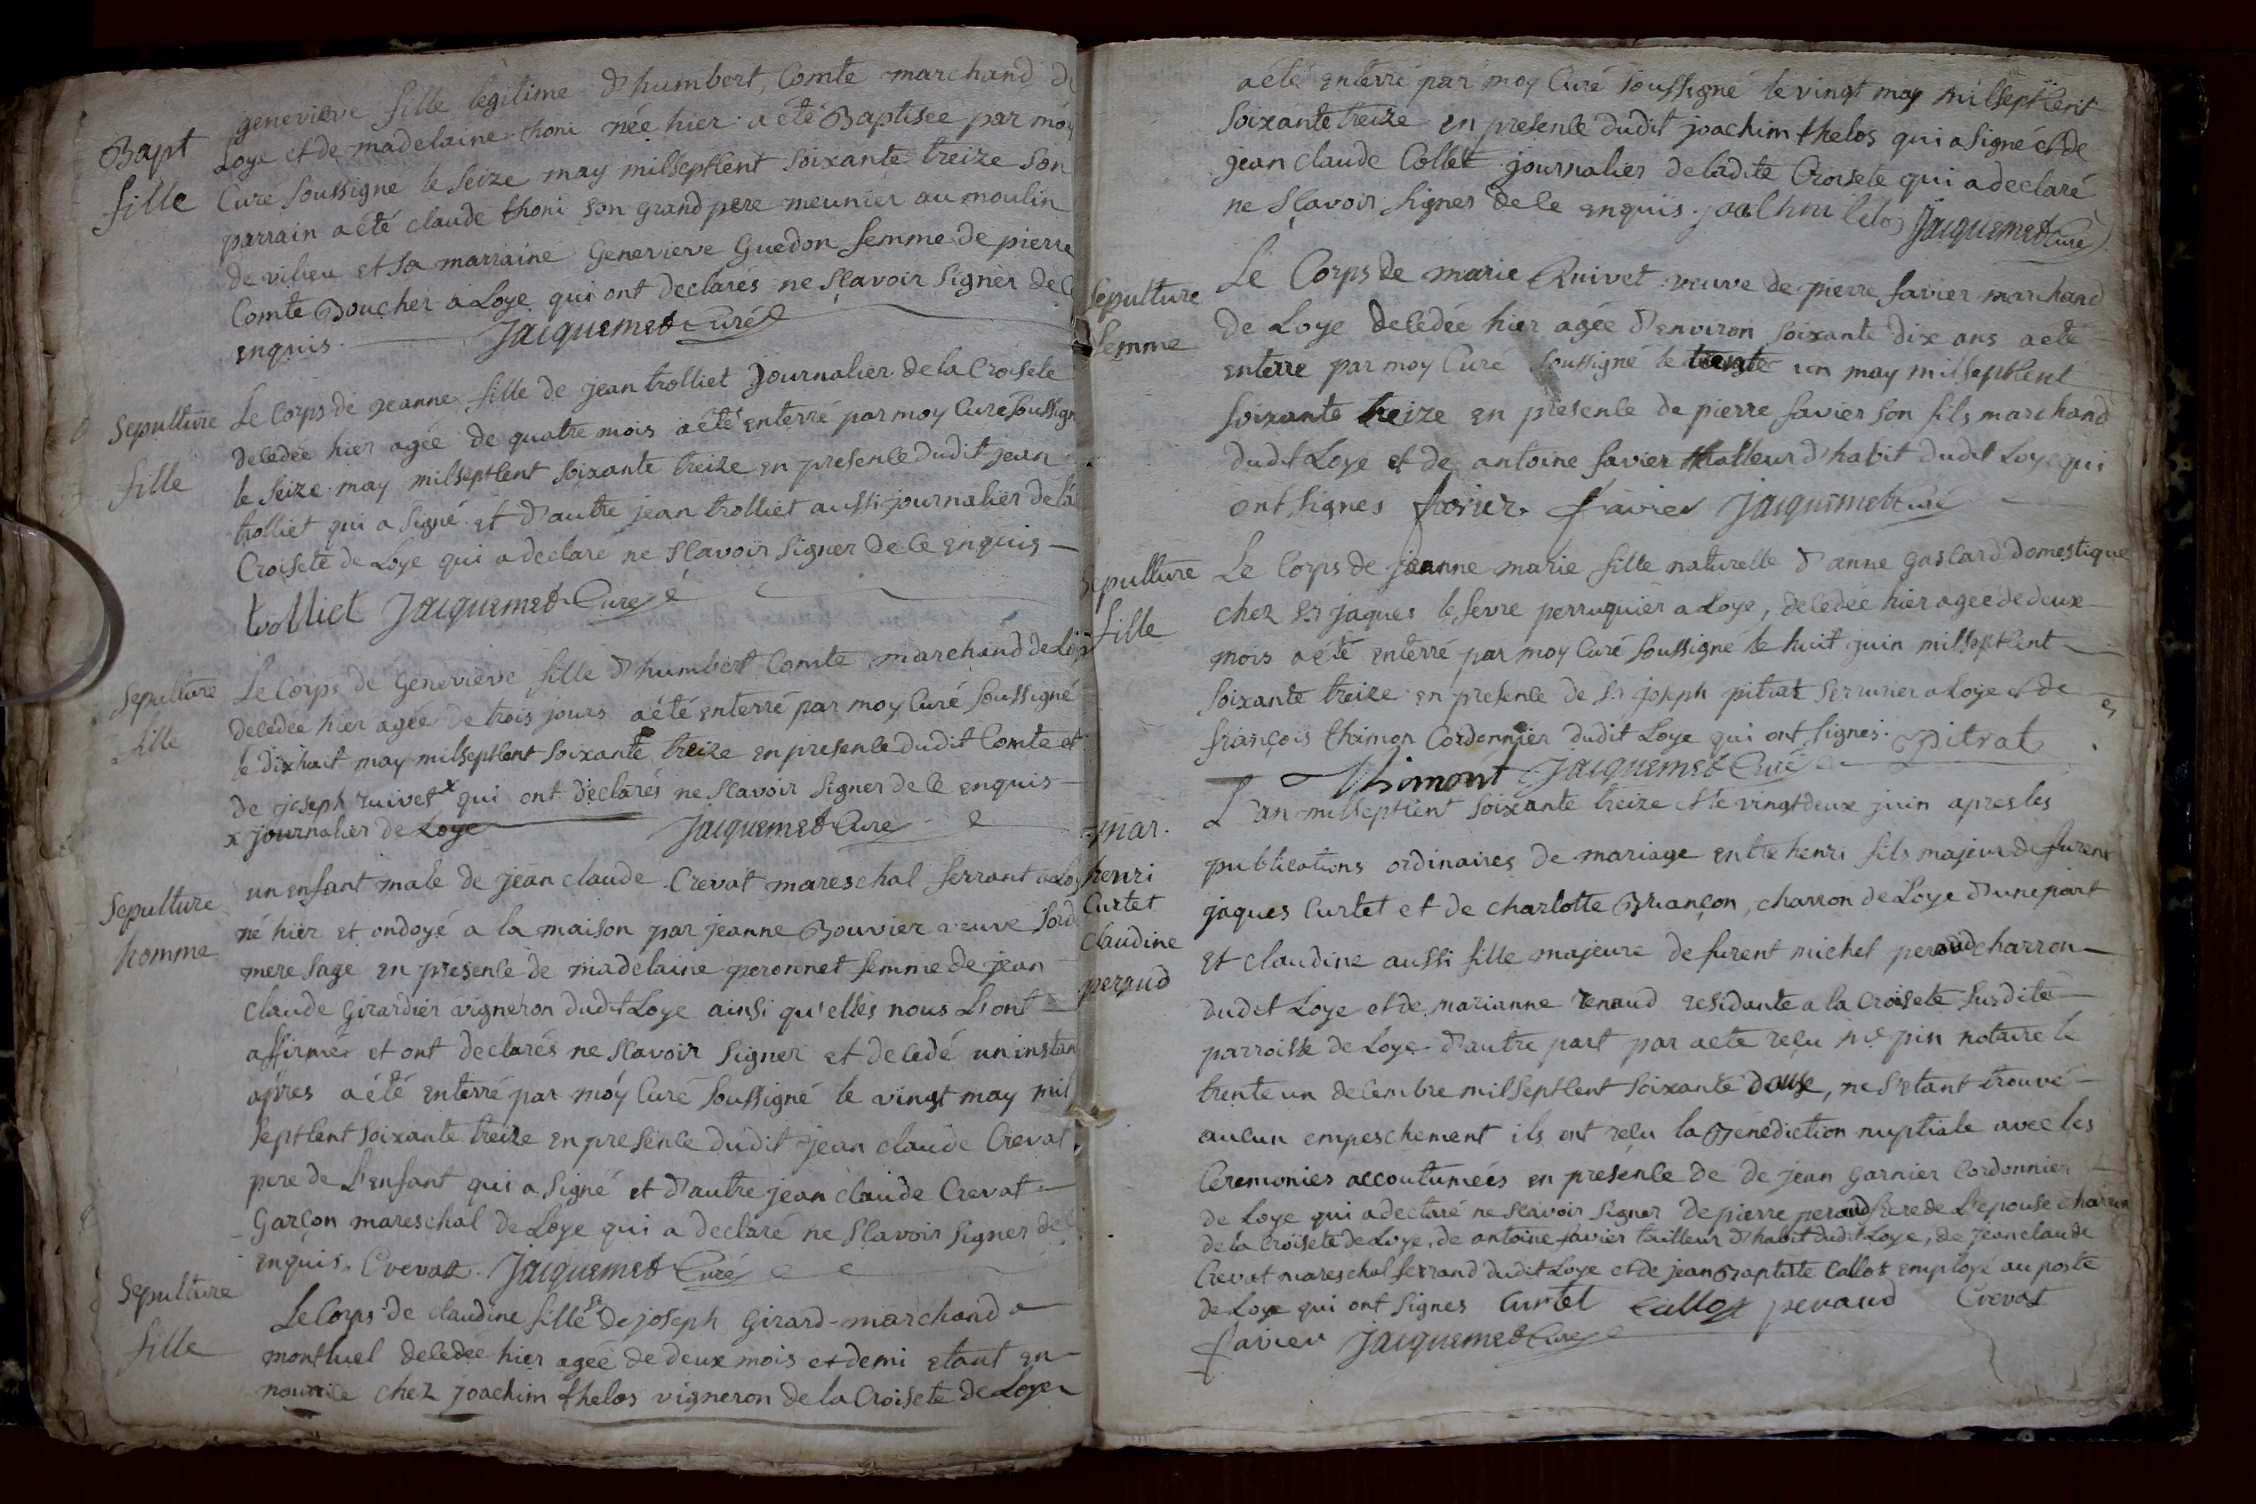 Bapt
fille
genevieve fille legitime d'humbert Comte marchand de
Loye et de madelaine thoni née hier a été Baptisée par moy
Curé soussigné le seize may milseptcent soixante treize son
parrain a été claude thoni son grand pere meunier au moulin
de vilieu et sa marraine Genevieve Guedon femme de pierre
Comte Boucher a Loye qui ont declarés ne sçavoir signer de ce
enquis. Jacquemet Curé
Sepulture
fille
Le Corps de jeanne fille de jean trolliet journalier de la Croisete
decedée hier agée de quatre mois a été enterré par moy Curé soussigné
le seize may milseptcent soixante treize en presence dudit jean
trolliet qui a signé et d'autre jean trolliet aussi journalier de la
Croisete de Loye qui a declaré ne sçavoir signer de ce enquis
trolliet Jacquemet Curé
Sepulture
fille
Le Corps de Genevieve fille d'humbert Comte marchand de Loye
decedée hier agée de trois jours a été enterré par moy Curé soussigné
le dixhuit may milseptcent soixante treize en presence dudit Comte et
de joseph ruivet x qui ont declarés ne sçavoir signer de ce enquis
x journalier de Loye Jacquemet Curé
Sepulture
homme
un enfant male de jean claude Crevat mareschal ferrant a Loye
né hier et ondoyé a la maison par jeanne Bouvier veuve
mere sage en presence de madelaine peronnet femme de jean
claude Girardier vigneron dudit Loye ainsi qu'elles nous L'ont
affirmér et ont declarés ne sçavoir signer et decedé un instan
apres a été enterré par moy Curé soussigné le vingt may mil
septcent soixante treize en presence dudit jean claude Crevat
pere de L'enfant qui a signé et d'autre jean claude Crevat
Garçon mareschal de Loye qui a declaré ne sçavoir signer de ce
enquis. Crevat. Jacquemet Curé
Sepulture
fille
Le Corps de claudine fille de sr joseph Girard marchand a
montluel decedée hier agée de deux mois et demi etant en
nourrice chez joachim thelos vigneron de la Croisete de Loye
a été enterré par moy Curé soussigné le vingt may milseptcent
soixante treize en presence dudit joachim thelos qui a signé et de
jean claude Collet journalier de ladite Croisete qui a declaré
ne sçavoir signer de ce enquis. Jacquemet Curé
Sepulture
femme
Le Corps de marie Ruivet veuve de pierre favier marchand
de Loye decedée hier agée d'environ soixante dix ans a été
enterré par moy Curé soussigné le trente un may milseptcent
soixante treize en presence de pierre favier son fils marchand
dudit Loye et de antoine favier tailleur d'habit dudit Loye qui
ont signés favier favier Jacquemet Curé
Sepulture
fille
Le Corps de jeanne marie fille naturelle d'anne Gascard domestique
chez sr jaques le fevre perruquier a Loye, decedée hier agée de deux
mois a été enterré par moy Curé soussigné le huit juin milseptcent
soixante treize en presence de sr joseph pitrat serrurier a Loye et de
françois thimon Cordonnier dudit Loye qui ont signés. pitrat
Thimont Jacquemet Curé
mar.
henri
Curtet
claudine
peraud
L'an milseptcent soixante treize et le vingtdeux juin apres les
publications ordinaires de mariage entre henri fils majeur de furent
jaques Curtet et de charlotte Briançon, charron de Loye d'une part
et claudine aussi fille majeure de furent michel peraud charron
dudit Loye et de marianne renaud residante a la Croisete susdite
parroisse de Loye d'autre part par acte reçu me pin notaire le
trente un decembre milseptcent soixante douse, ne s'etant trouvé
aucun empeschement ils ont reçu la Benediction nuptiale avec les
Ceremonies accoutumées en presence de de jean Garnier Cordonnier
de Loye qui a declaré ne sçavoir signer de pierre peraud frere de L'epouse charron
de la Croisete de Loye, de antoine favier tailleur d'habit dudit Loye, de jean claude
Crevat mareschal ferrand dudit Loye et de jean Baptiste Callot employé au poste
de Loye qui ont signés Curtet Callot peraud Crevat
favier Jacquemet Curé